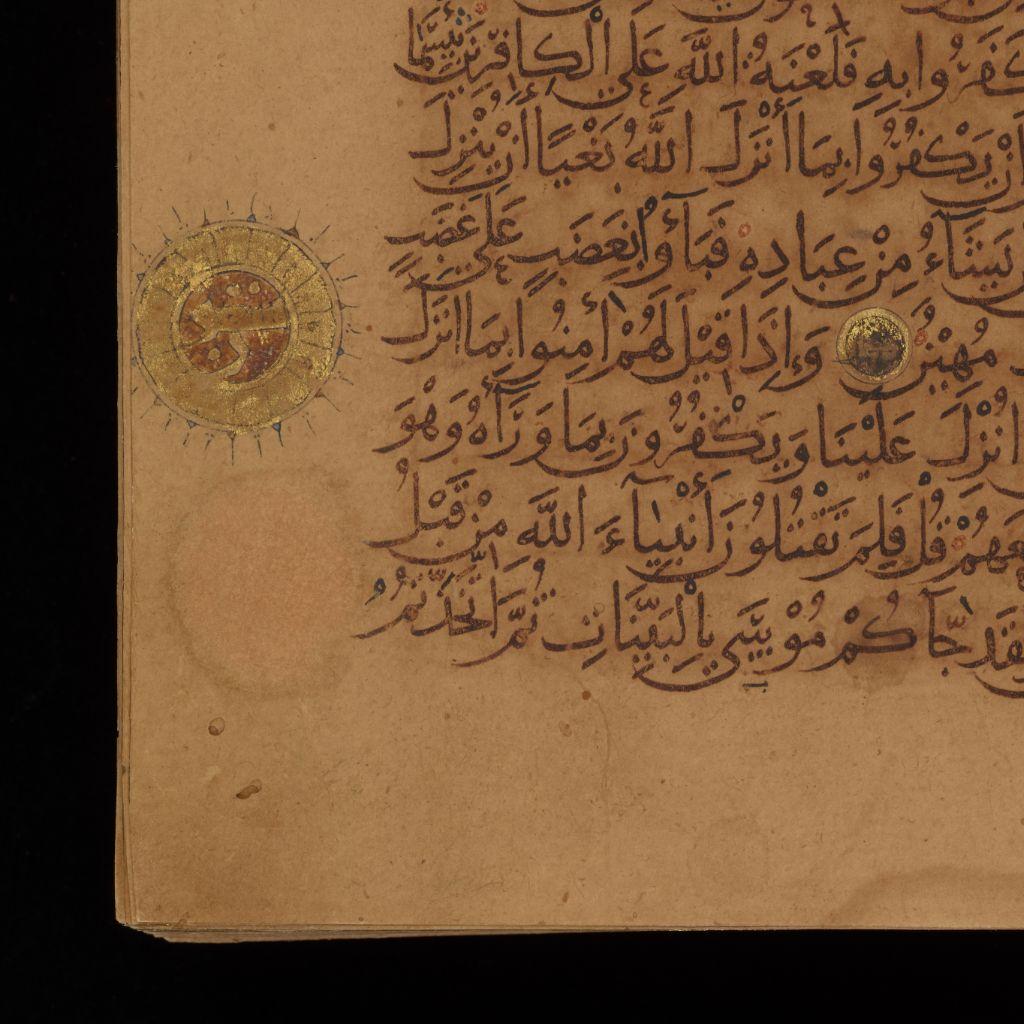 كَفَرُوا بِهِ فَلَعْنَةُ اللَّهِ عَلَى الْكَافِرِينَ بِئْسَمَا
أَنْ يَكْفُرُوا بِمَا أَنْزَلَ اللَّهُ بَغْيًا أَنْ يُنْزِلَ
يَشَاءُ مِنْ عِبَادِهِ فَبَاؤُا بِغَضَبٍ عَلَى غَضَبٍ
مُهِينٌ وَإِذَا قِيلَ لَهُمْ آمِنُوا بِمَا أَنْزَلَ
أُنْزِلَ عَلَيْنَا وَيَكْفُرُونَ بِمَا وَرَآءَهُ وَهْوَ
مَعَهُمْ قُلْ فَلِمَ تَقْتُلُونَ أَنْبِيَآءَ اللَّهِ مِنْ قَبْلُ
لَقَدْ جَّآكُمْ مُوْسَى بِالْبَيِّنَاتِ ثُمَّ اتَّخَذْتُمُ